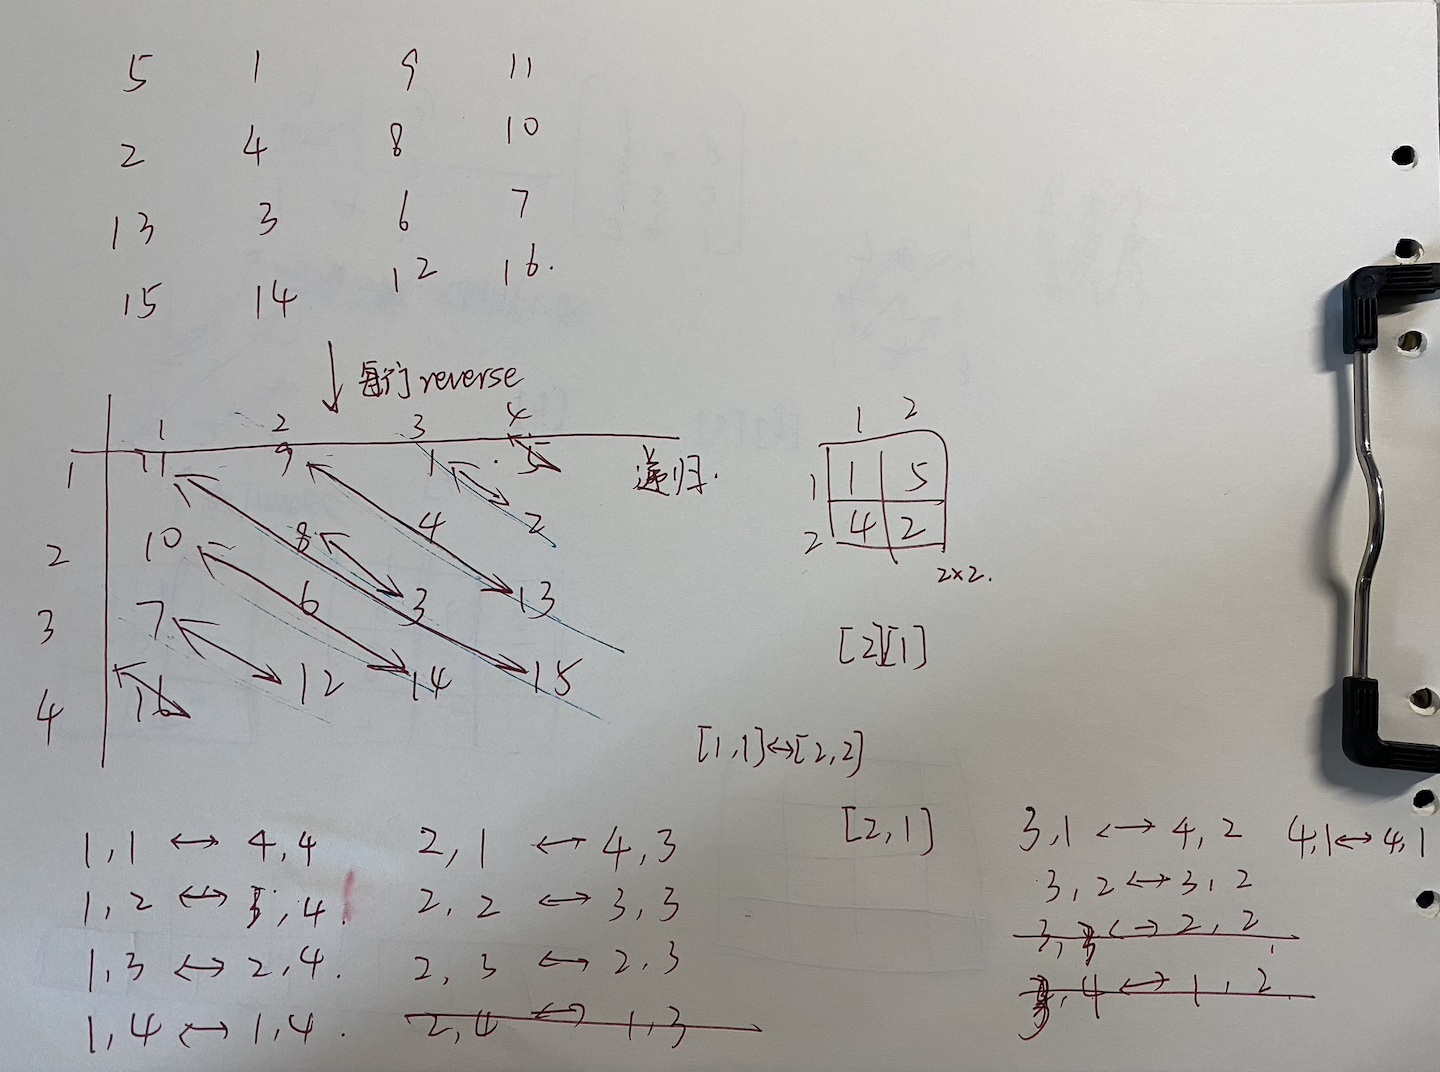 5 1 9 11
2 4 8 10
13 3 6 7
15 14 12 16.
每行reverse
1 2 3 4
1 11 9 1 5
2 10 8 4 2
3 7 6 3 13
4 16 12 14 15
递归.
1 2
1 1 5
2 4 2
2×2.
[2][1]
[1,1]↔[2,2]
[2,1]
1,1 ↔ 4,4
1,2 ↔ 3,4.
1,3 ↔ 2,4.
1,4 ↔ 1,4.
2,1 ↔ 4,3
2,2 ↔ 3,3
2,3 ↔ 2,3
2,4 ↔ 1,3
3,1 ↔ 4,2
3,2 ↔ 3,2
3,3 ↔ 2,2
3,4 ↔ 1,2.
4,1 ↔ 4,1